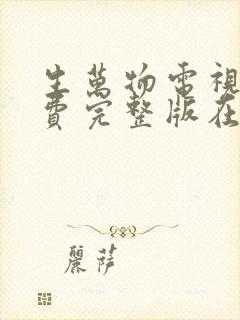 生萬物電視
費完整版在
麗薩